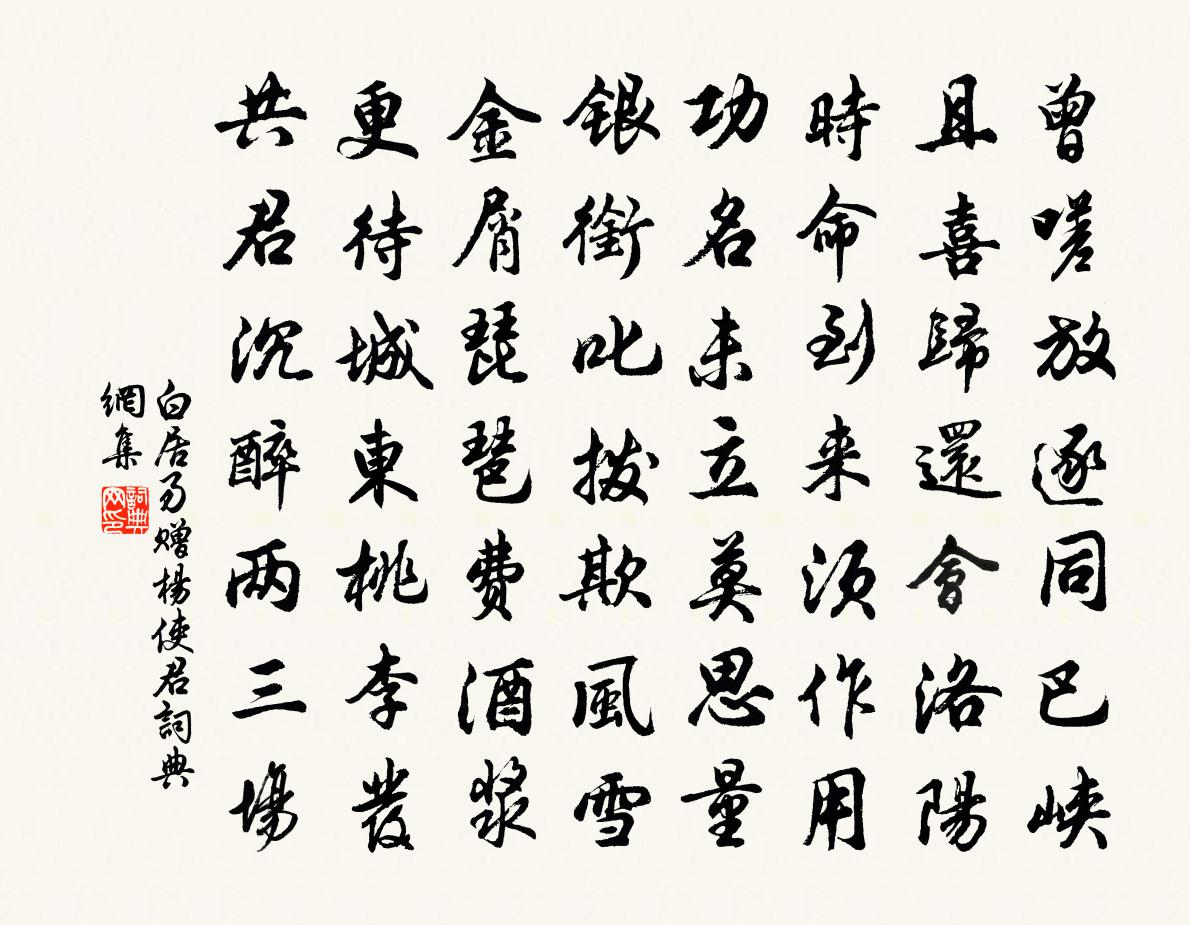 曾嗟放逐同巴峽
且喜歸還會洛陽
時命到来須作用
功名未立莫思量
銀銜叱撥欺風雪
金屑琵琶費酒漿
更待城東桃李發
共君沉醉两三場
白居易贈楊使君詞典
網集
詞典
网印